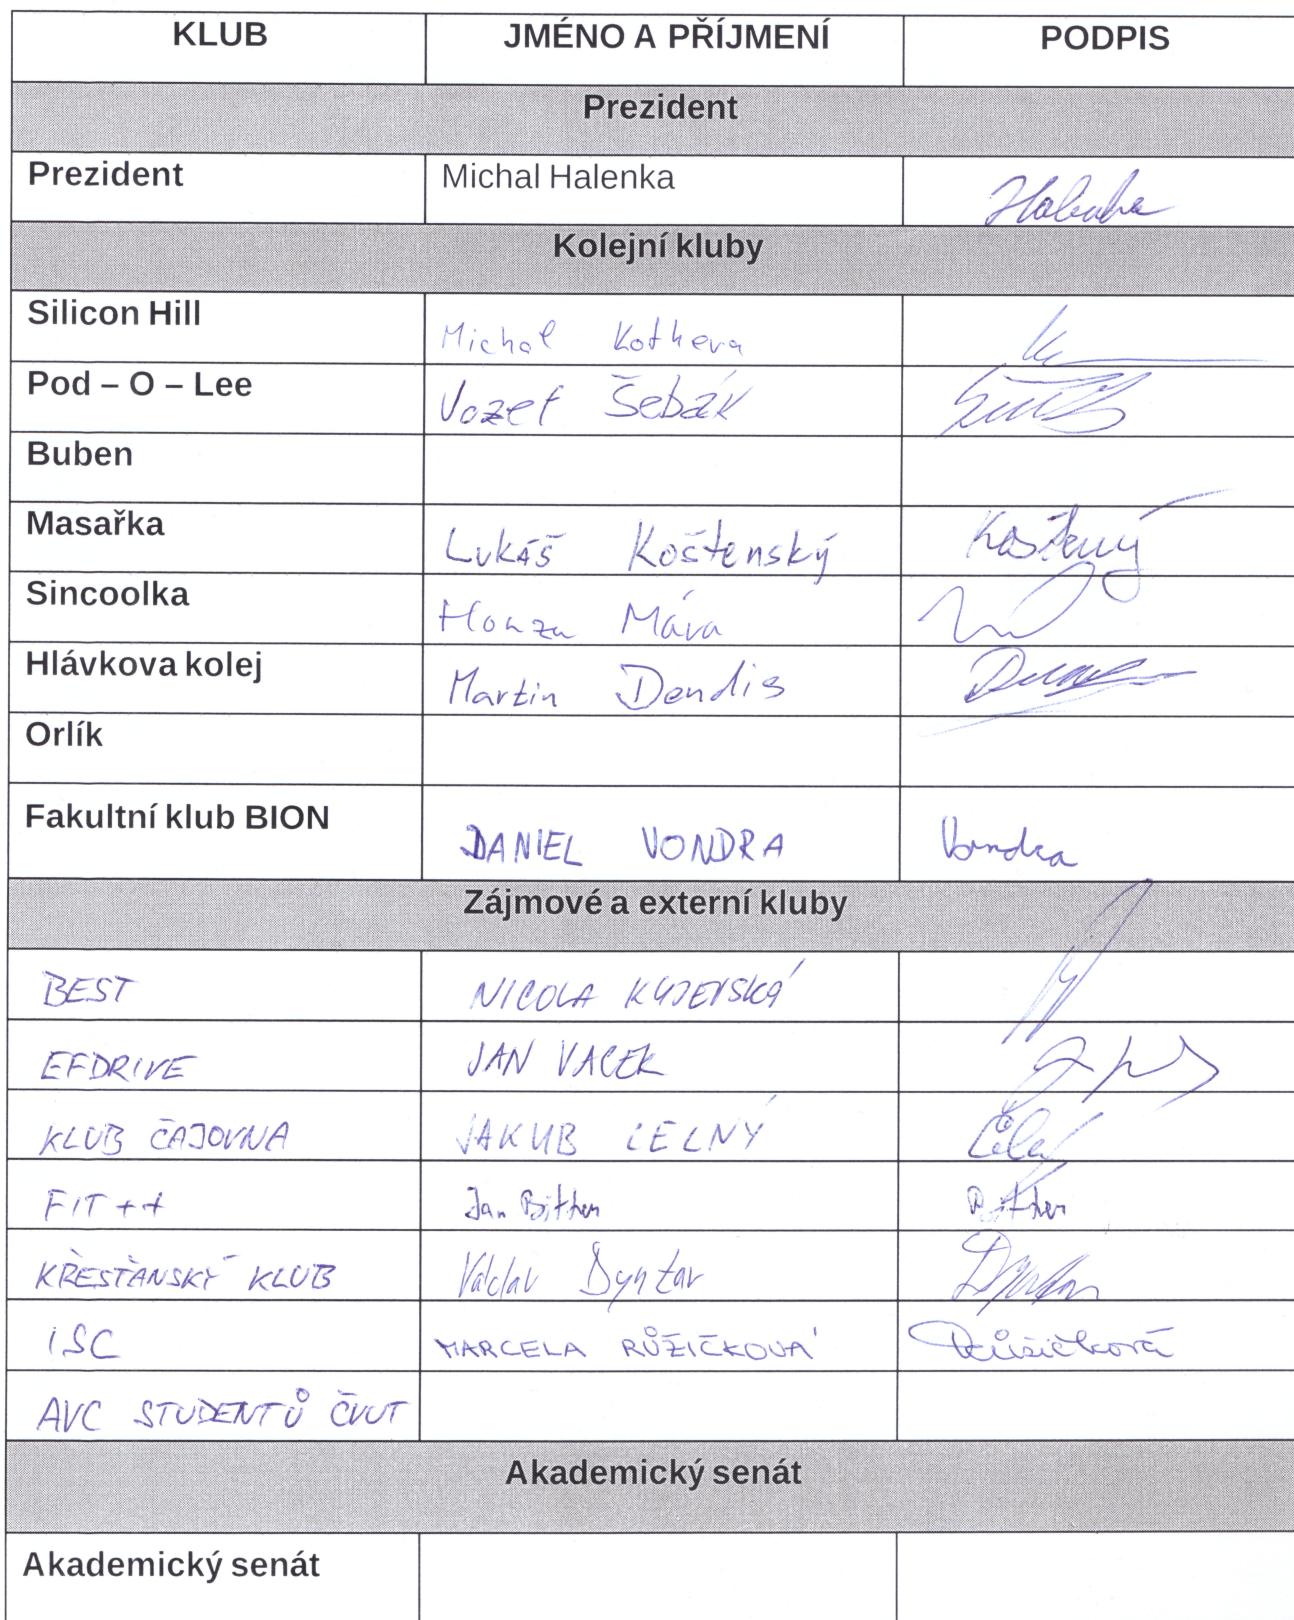 KLUB JMÉNO A PŘÍJMENÍ PODPIS
Prezident
Prezident Michal Halenka Halenka
Kolejní kluby
Silicon Hill Michal Kothera
Pod – O – Lee Jozef Šebák
Buben
Masařka Lukáš Koštenský
Sincoolka Honza Máva
Hlávkova kolej Martin Dendis
Orlík
Fakultní klub BION DANIEL VONDRA Vondra
Zájmové a externí kluby
BEST NICOLA KYJEVSKÁ
EFDRIVE JAN VACEK
KLUB ČAJOVNA JAKUB CELNÝ
FIT++ Jan Bittner Bittner
KŘESŤANSKÝ KLUB Václav Dyntar
ISC MARCELA RŮŽIČKOVÁ Růžičková
AVC STUDENTŮ ČVUT
Akademický senát
Akademický senát